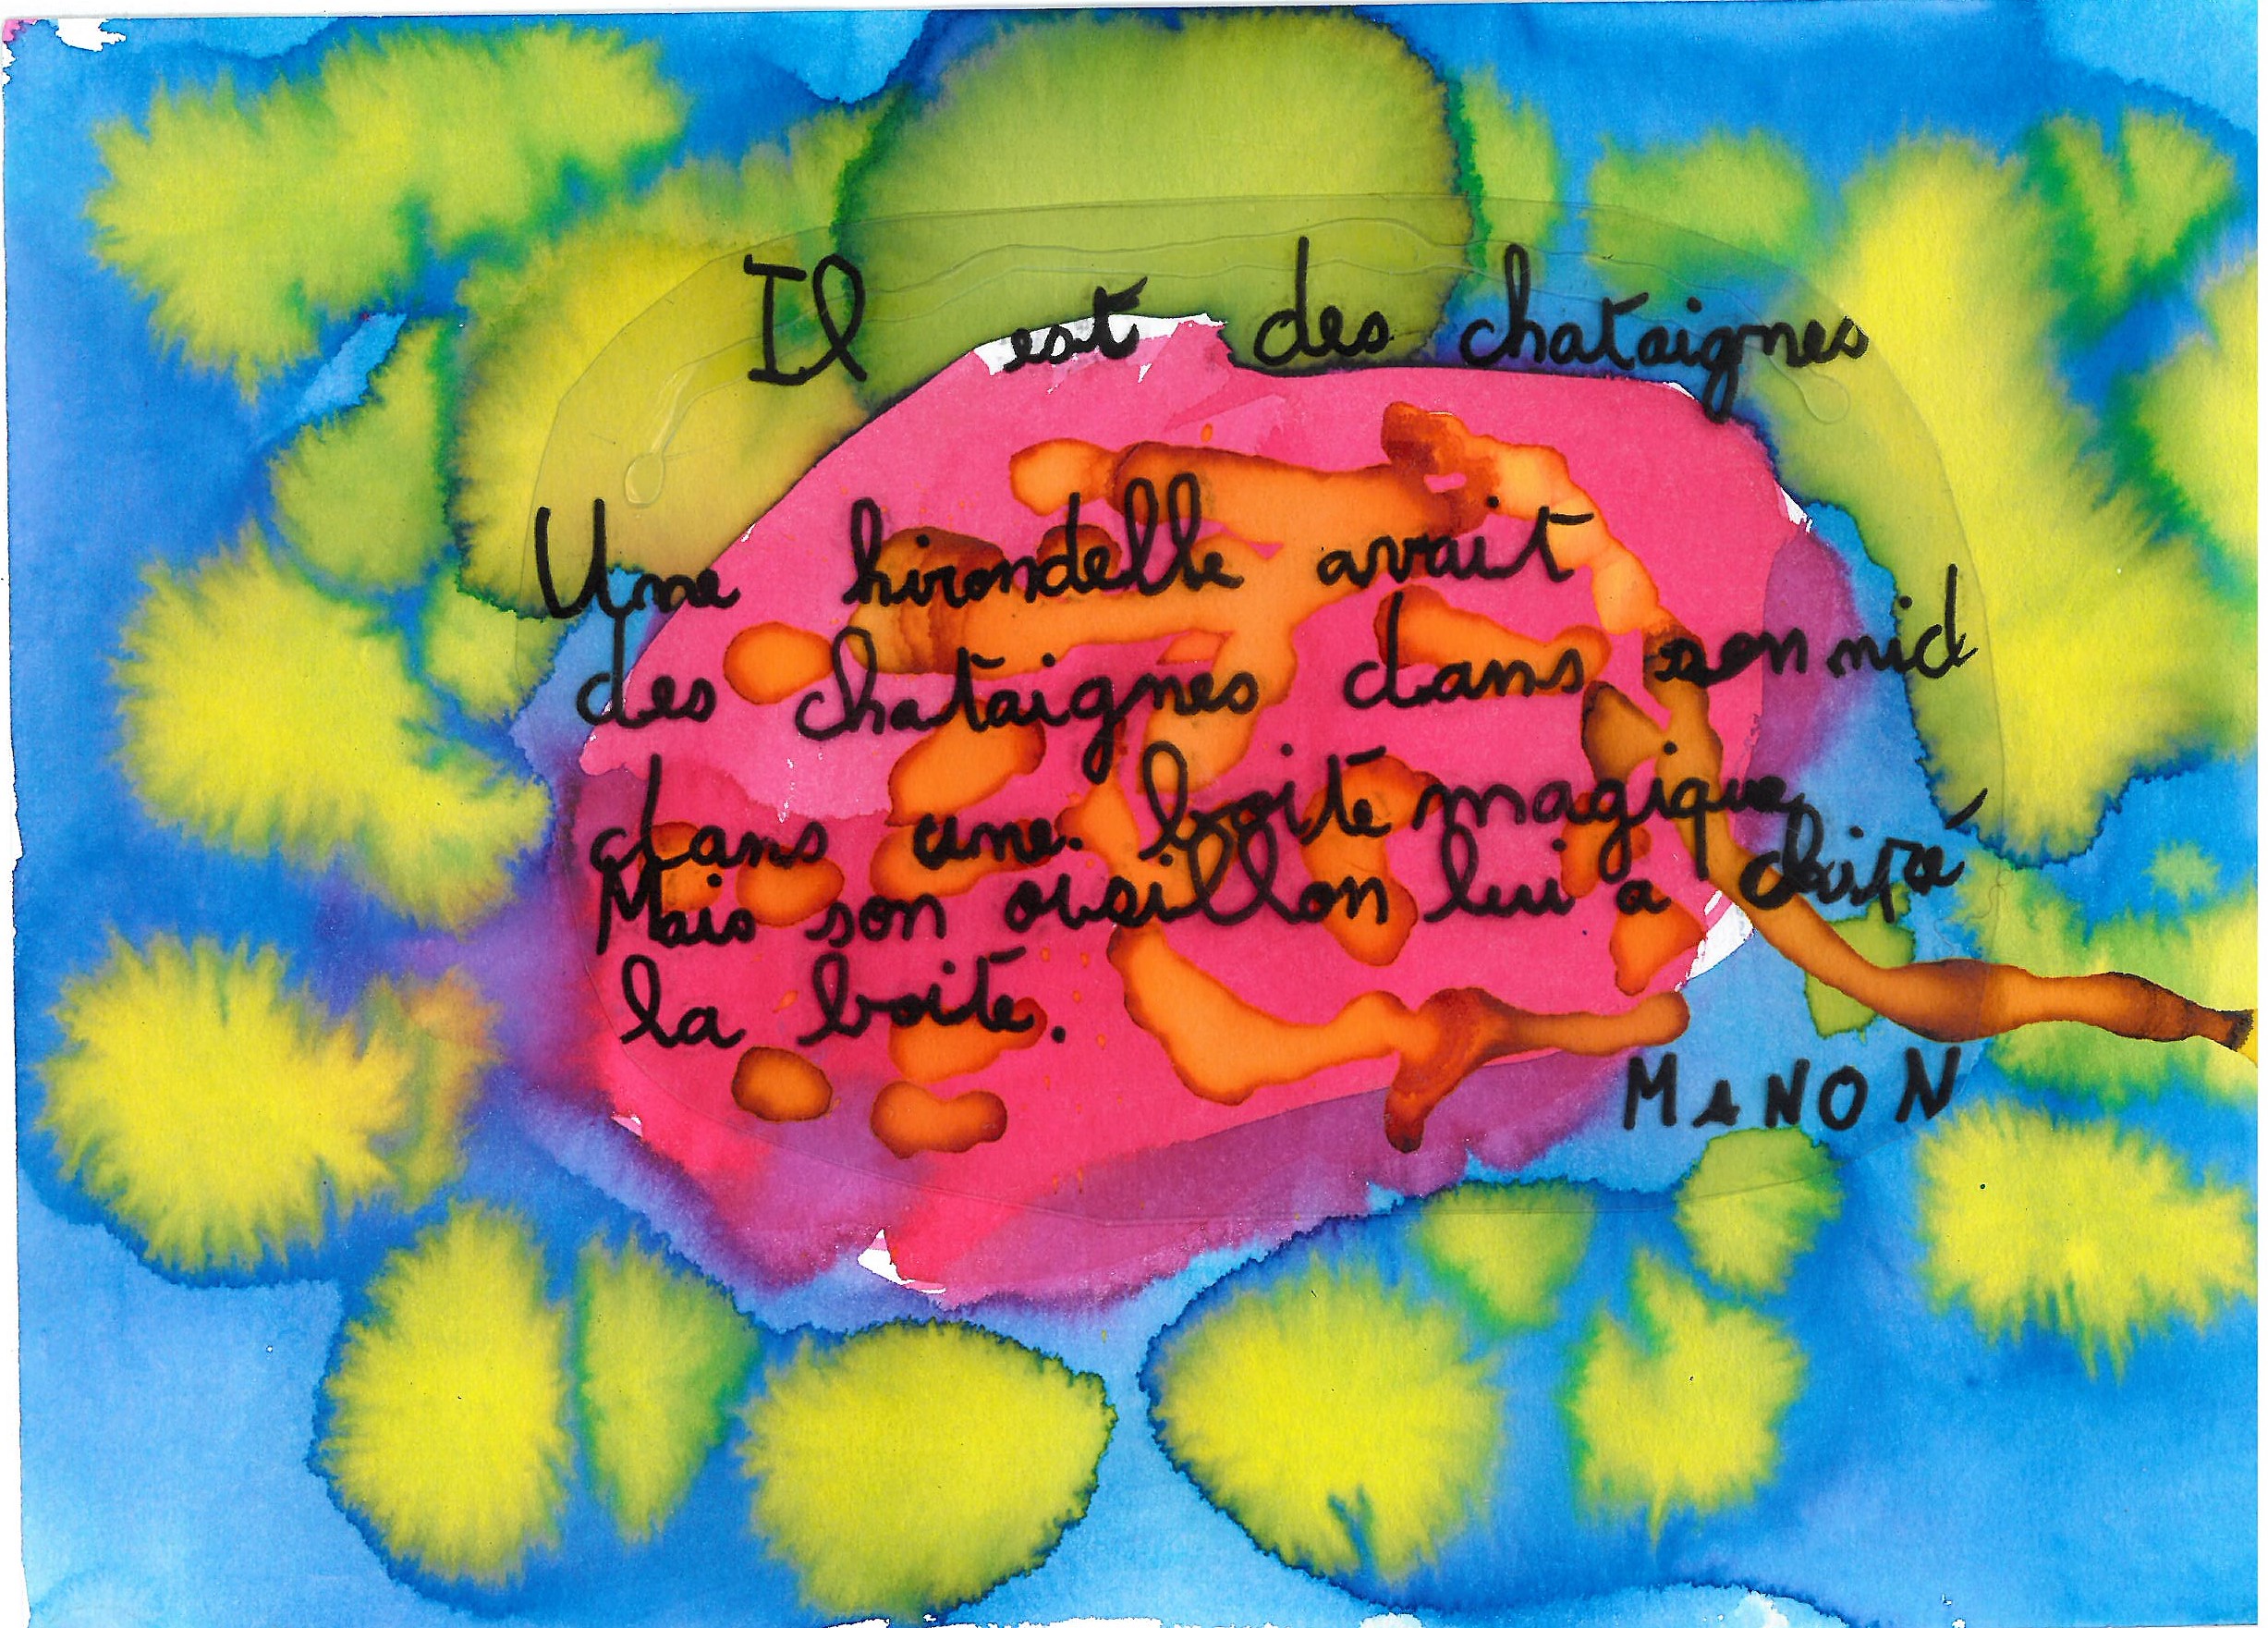 Il est des chataignes
Une hirondelle avait
des chataignes dans son nid
dans une. boite magique
Mais son oisillon lui a
la boite.
MANON